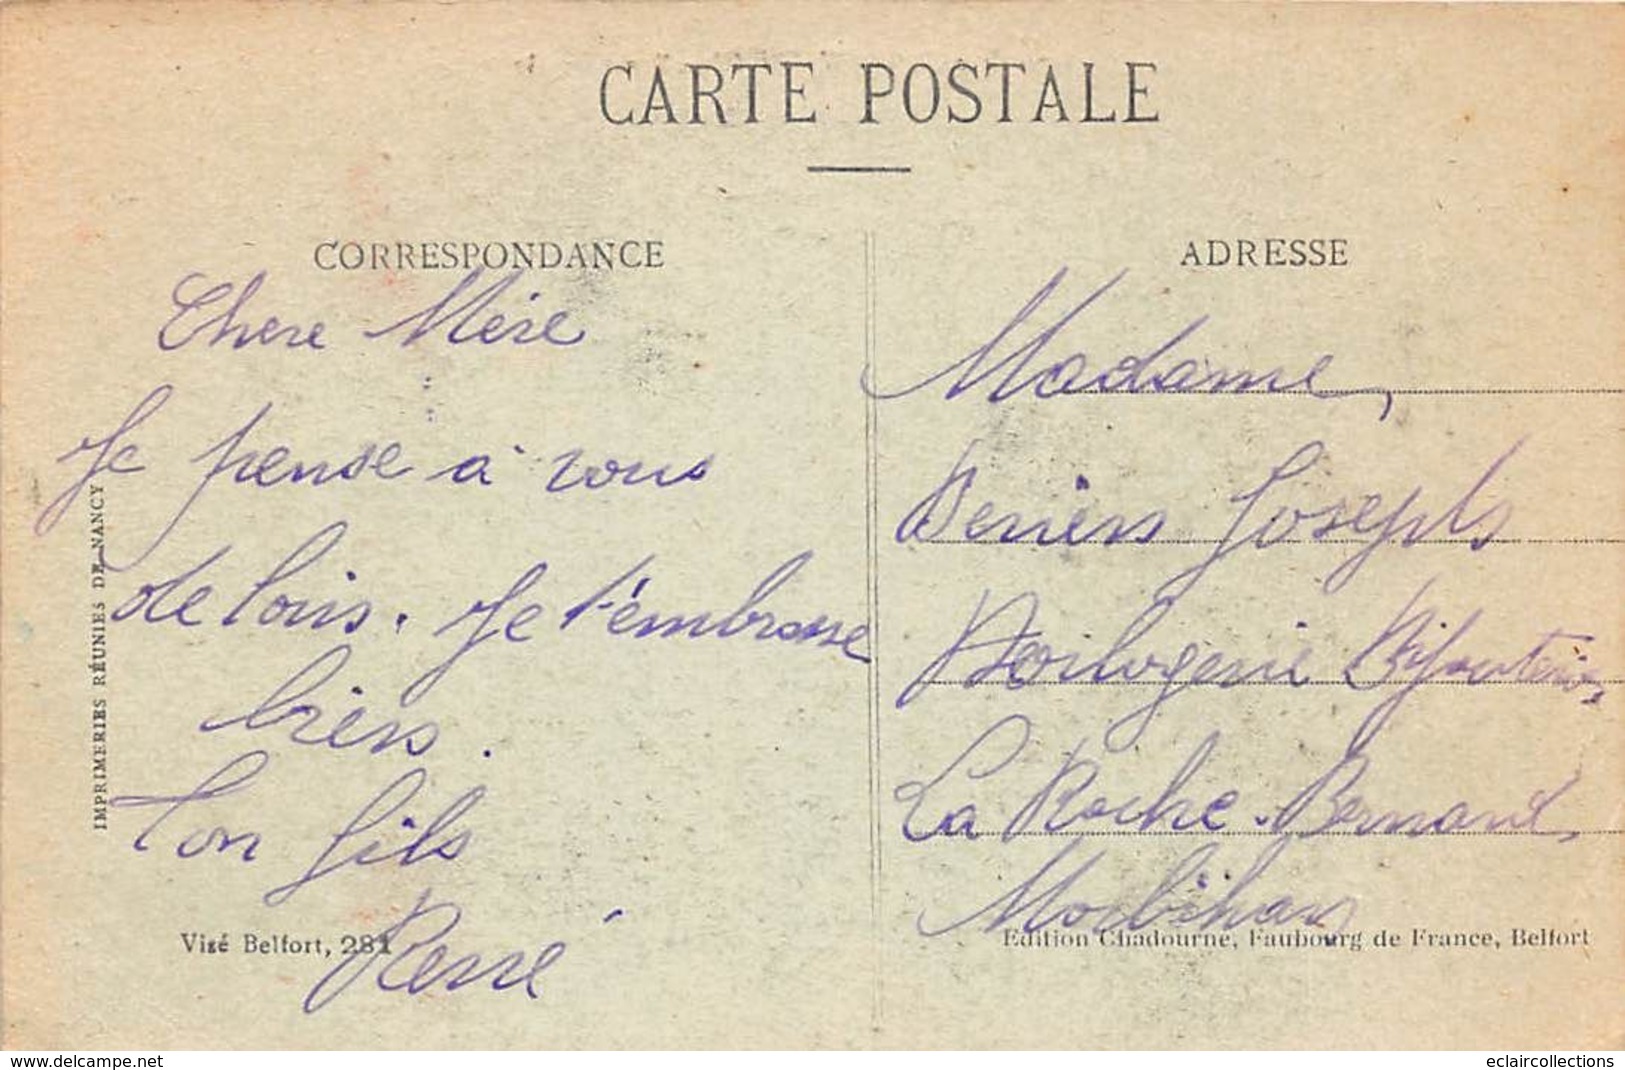 CARTE POSTALE
CORRESPONDANCE
Chere Mère
Je pense à vous
de loin. Je t'embrasse
bien.
Ton fils
René
ADRESSE
Madame,
Joseph
Horlogerie Bijouterie,
La Roche-Bernard,
Morbihan
IMPRIMERIES RÉUNIES DE NANCY
Visé Belfort, 281
Edition Chadourne, Faubourg de France, Belfort
www.delcampe.net
eclaircollections